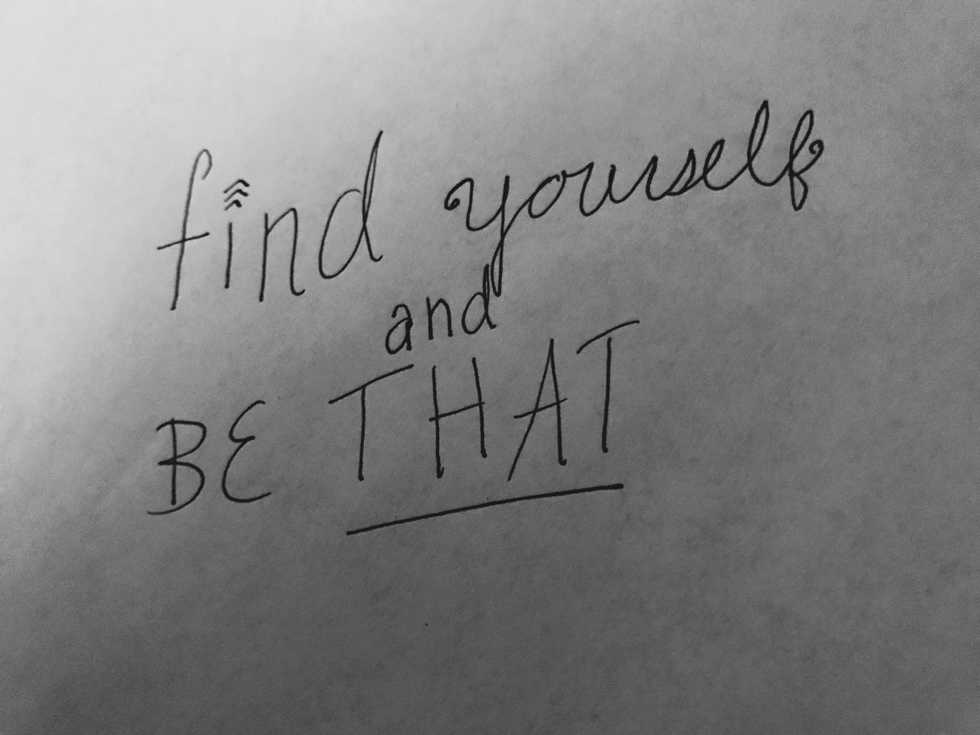 find yourself
and
BE THAT